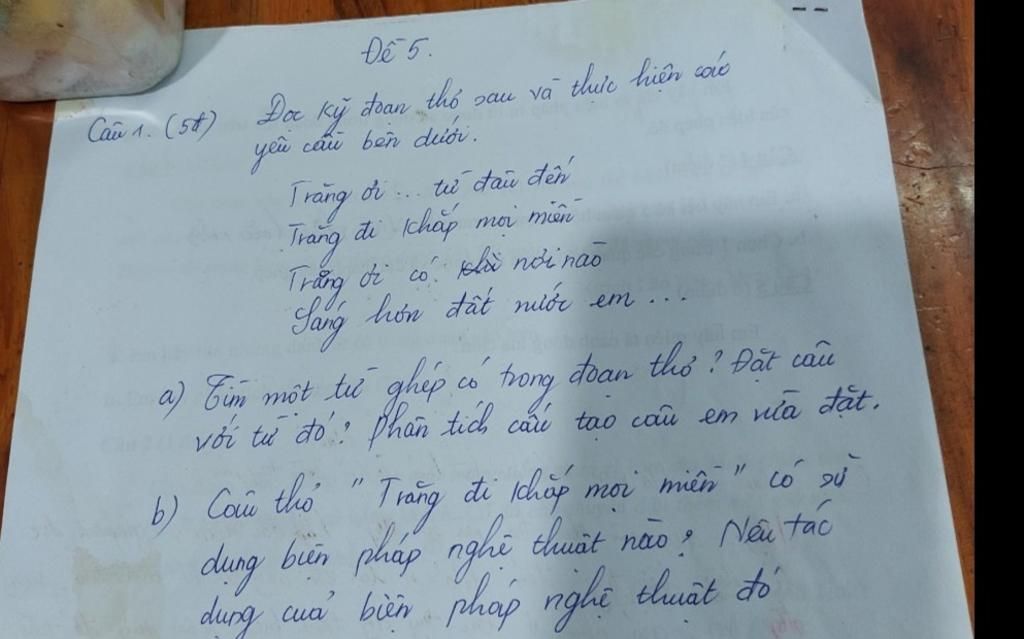 Đề 5.
Câu 1. (5đ) Đọc kỹ đoạn thơ sau và thực hiện các
yêu cầu bên dưới.
Trăng ơi ... từ đâu đến
Trăng đi khắp mọi miền
Trăng ơi có nơi nào
Sáng hơn đất nước em ...
a) Tìm một từ ghép có trong đoạn thơ? Đặt câu
với từ đó? Phân tích cấu tạo câu em vừa đặt.
b) Câu thơ "Trăng đi khắp mọi miền" có sử
dụng biện pháp nghệ thuật nào? Nêu tác
dụng của biện pháp nghệ thuật đó